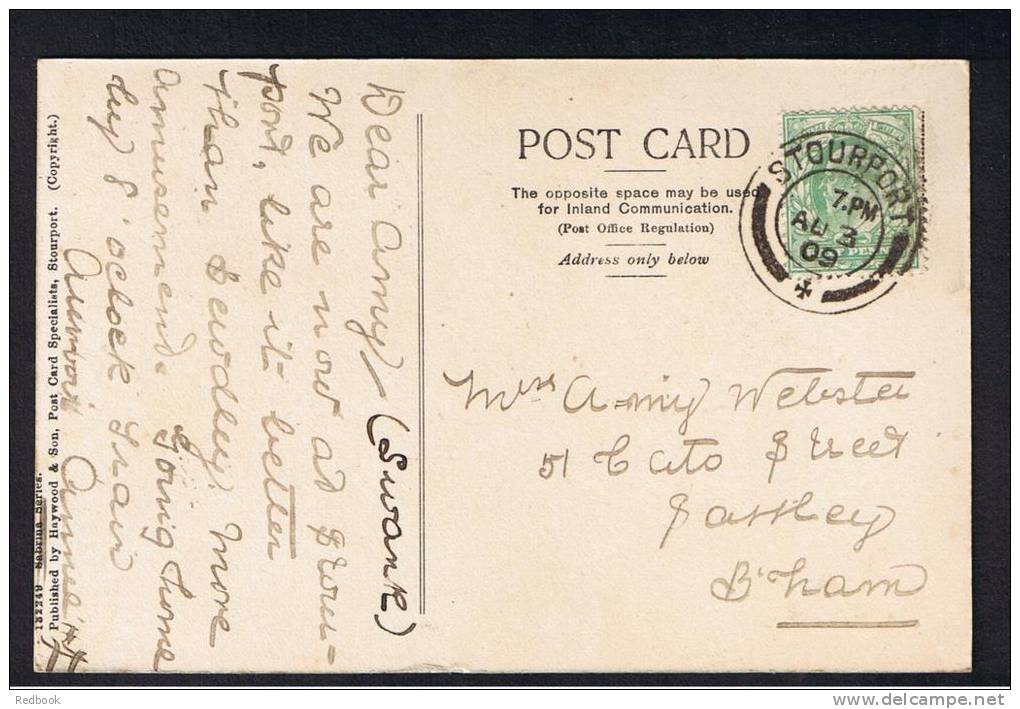 Dear Amy / (Swank)
We are now at Stour-
port, like it better
than Bewdley, more
ammusement. Going home
by 8 o'clock train
Auntie
POST CARD
The opposite space may be used
for Inland Communication.
(Post Office Regulation)
Address only below
STOURPORT
7.PM
AU 3
09
Miss Amy Webster
51 Cato Street
Saltley
B'ham
132249 Sabrina Series.
Published by Haywood & Son, Post Card Specialists, Stourport. (Copyright.)
Redbook
www.delcampe.net